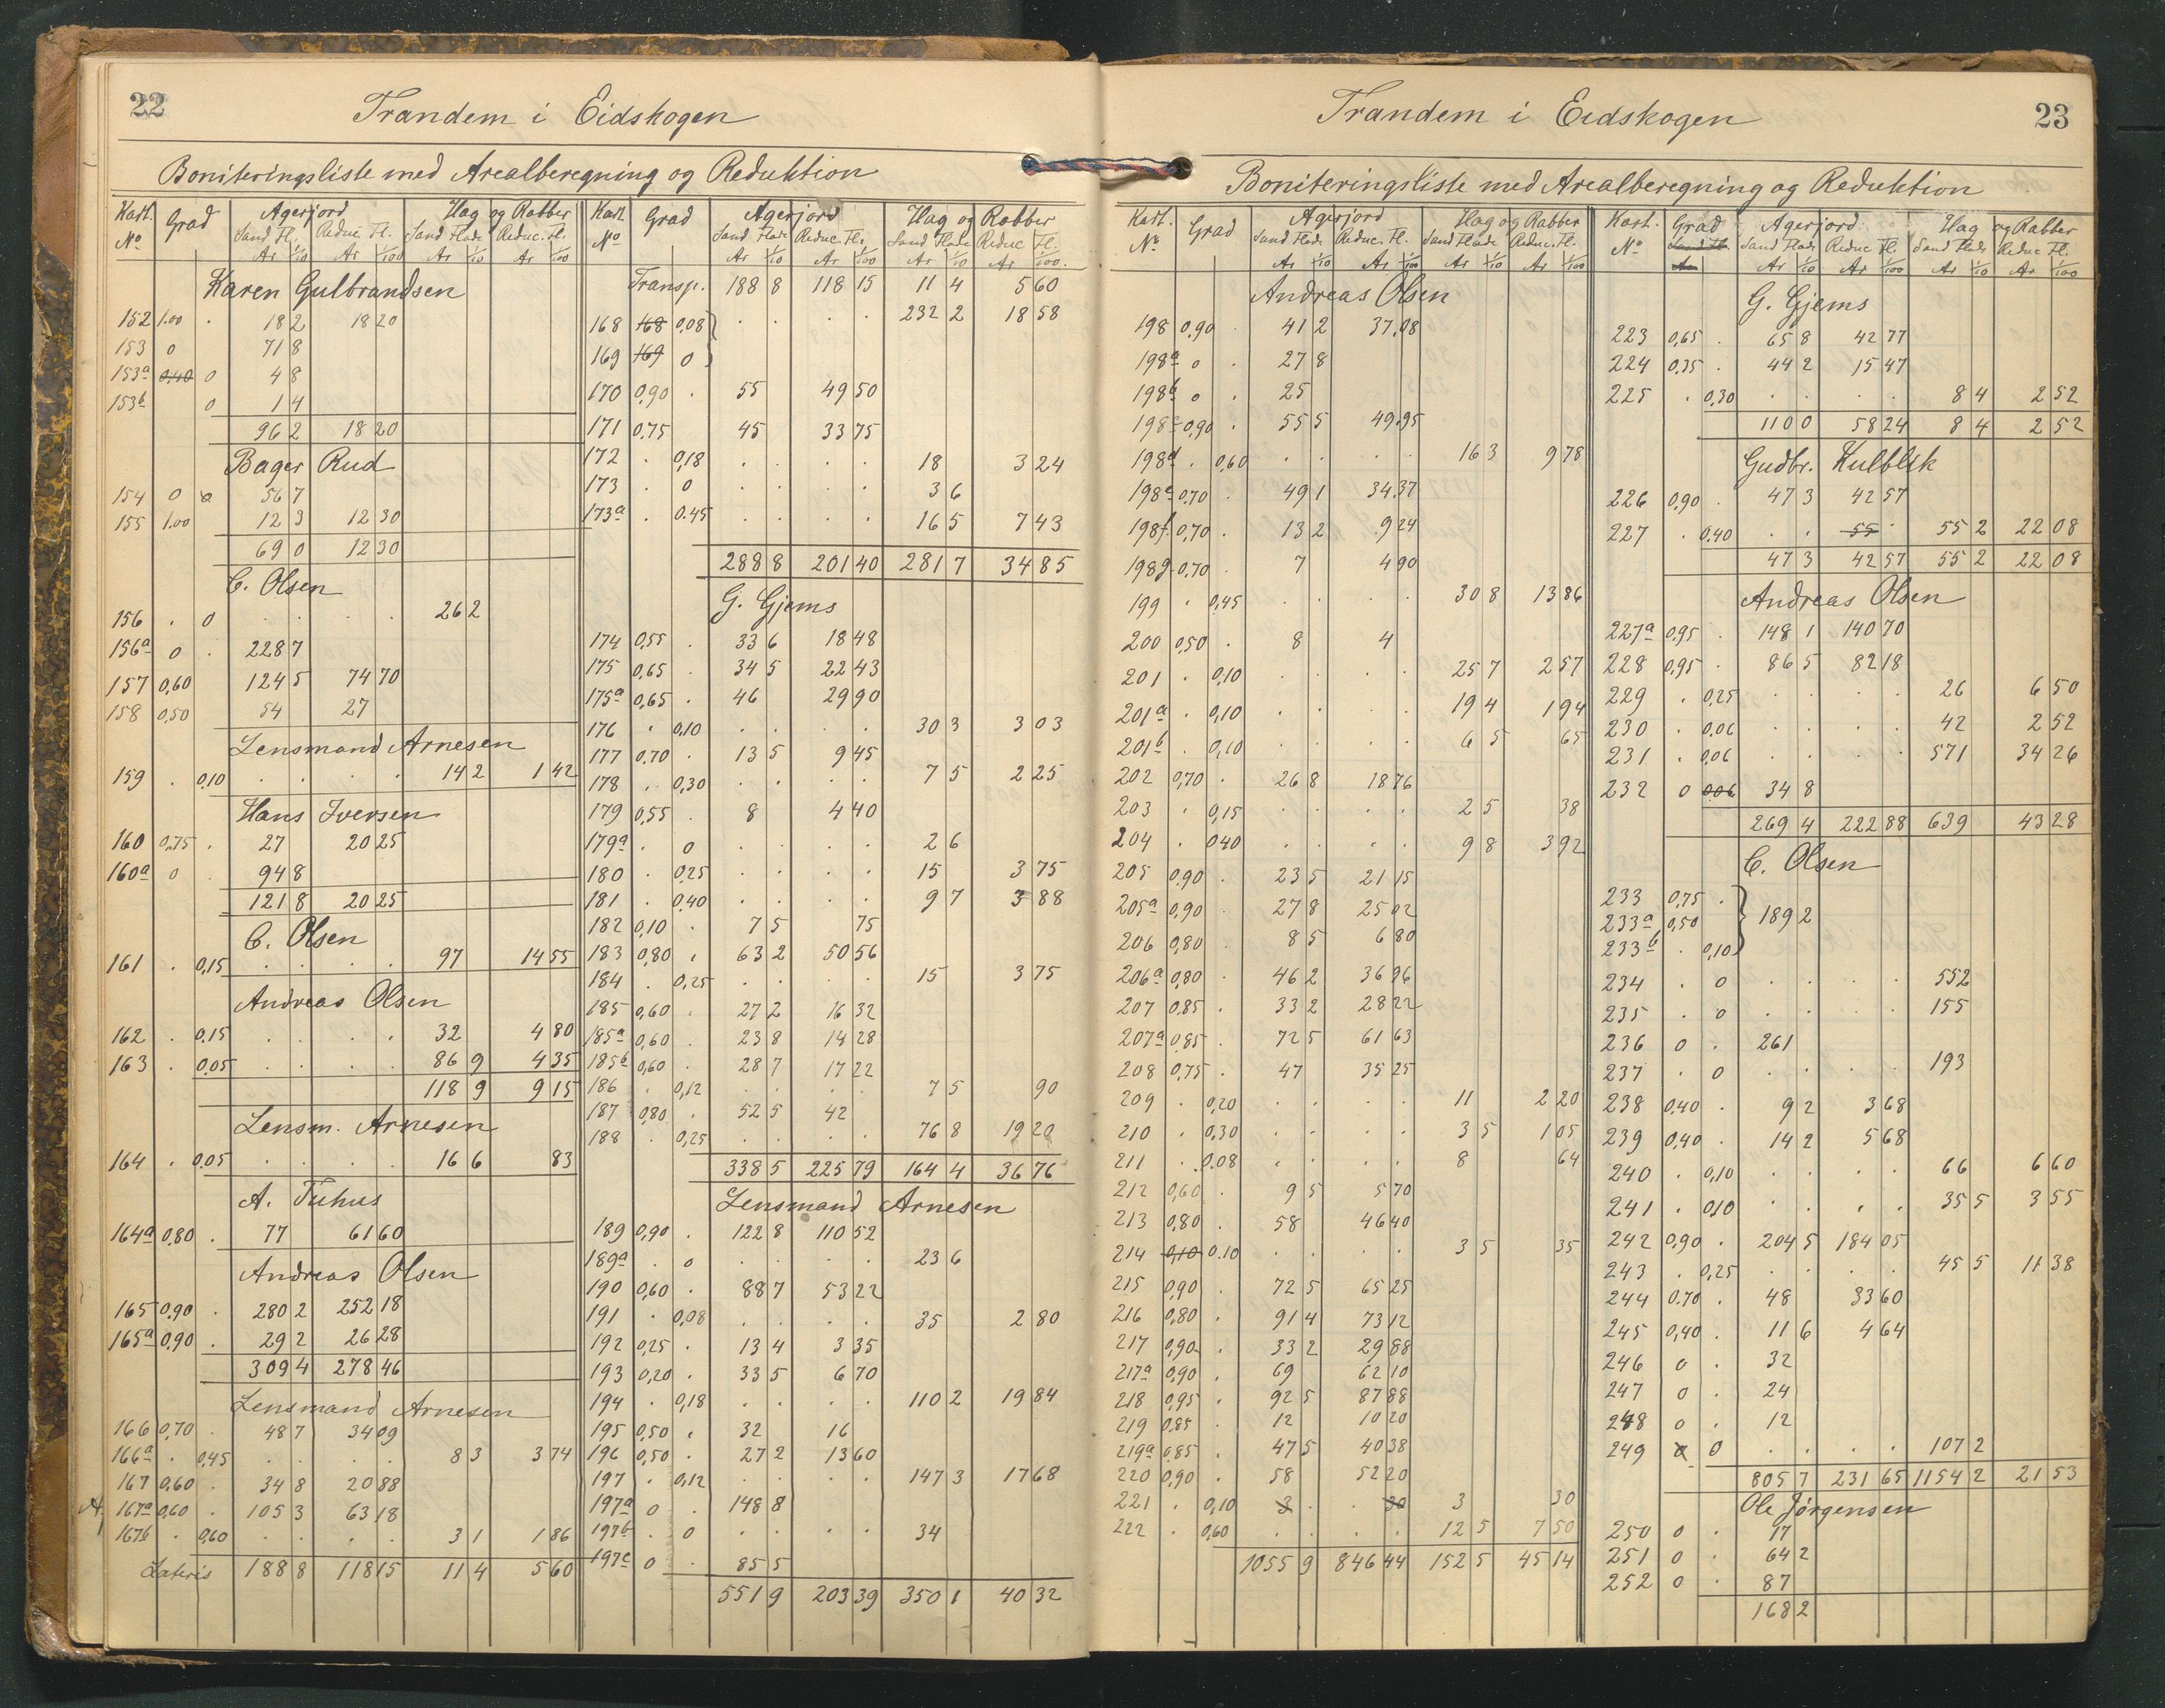 22
Trandem i Eidskogen
Boniteringsliste med Arealberegning og Reduktion
Kart. No Grad Agerjord Hag og Rabber
Sand Fl. Reduc. Fl. Sand Flade Reduc. Fl.
Ar 1/10 Ar 1/100 Ar 1/10 Ar 1/100
Karen Gulbrandsen
152 1.00 . 18 2 18 20
153 0 71 8
153a 0,40 0 4 8
153b 0 1 4
96 2 18 20
Bager Rud
154 0 56 7
155 1.00 12 3 12 30
69 0 12 30
C. Olsen
156 . 0 . . . . 26 2
156a 0 . 228 7
157 0,60 124 5 74 70
158 0,50 54 27
Lensmand Arnesen
159 . 0,10 . . . . 14 2 1 42
Hans Iversen
160 0,75 . 27 20 25
160a 0 . 94 8
121 8 20 25
C. Olsen
161 . 0,15 . . . . 97 14 55
Andreas Olsen
162 . 0,15 . . . . 32 4 80
163 . 0,05 . . . . 86 9 4 35
118 9 9 15
Lensm. Arnesen
164 . 0,05 . . . . 16 6 83
A. Tuhus
164a 0,80 . 77 61 60
Andreas Olsen
165 0,90 . 280 2 252 18
165a 0,90 . 29 2 26 28
309 4 278 46
Lensmand Arnesen
166 0,70 . 48 7 34 09
166a . 0,45 . . . . 8 3 3 74
167 0,60 . 34 8 20 88
A. 167a 0,60 . 105 3 63 18
167b . 0,60 . . . . 3 1 1 86
Lateris 188 8 118 15 11 4 5 60
Kart. No Grad Agerjord Hag og Rabber
Sand Flade Reduc. Fl. Sand Flade Reduc Fl.
Ar 1/10 Ar 1/100 Ar 1/10 Ar 1/100.
Transp. 188 8 118 15 11 4 5 60
168 168 0,08 } . . . . 232 2 18 58
169 169 0 }
170 0,90 . 55 49 50
171 0,75 45 33 75
172 . 0,18 . . . . 18 3 24
173 . 0 . . . . 3 6
173a . 0.45 . . . . 16 5 7 43
288 8 201 40 281 7 34 85
G. Gjems
174 0,55 . 33 6 18 48
175 0,65 . 34 5 22 43
175a 0,65 . 46 29 90
176 . 0,10 . . . . 30 3 3 03
177 0.70 . 13 5 9 45
178 . 0,30 . . . . 7 5 2 25
179 0,55 . 8 4 40
179a . 0 . . . . 2 6
180 . 0,25 . . . . 15 3 75
181 . 0,40 . . . . 9 7 3 88
182 0,10 . 7 5 75
183 0,80 . 63 2 50 56
184 . 0,25 . . . . 15 3 75
185 0,60 . 27 2 16 32
185a 0,60 . 23 8 14 28
185b 0,60 . 28 7 17 22
186 . 0,12 . . . . 7 5 90
187 0,80 . 52 5 42
188 . 0,25 . . . . 76 8 19 20
338 5 225 79 164 4 36 76
Lensmand Arnesen
189 0,90 . 122 8 110 52
189a . 0 . . . . 23 6
190 0,60 . 88 7 53 22
191 . 0,08 . . . . 35 2 80
192 0,25 . 13 4 3 35
193 0,20 . 33 5 6 70
194 . 0,18 . . . . 110 2 19 84
195 0,50 . 32 16
196 0,50 . 27 2 13 60
197 . 0,12 . . . . 147 3 17 68
197a 0 . 148 8
197b . 0 . . . . 34
197c 0 . 85 5
551 9 203 39 350 1 40 32
23
Trandem i Eidskogen
Boniteringsliste med Arealberegning og Reduktion
Kart. No Grad Agerjord Hag og Rabber
Sand Flade Reduc. Fl. Sand Flade Reduc. Fl.
Ar 1/10 Ar 1/100 Ar 1/10 Ar 1/100
Andreas Olsen
198 0,90 . 41 2 37.08
198a 0 . 27 8
198b 0 . 25
198c 0,90 . 55 5 49.95
198d . 0,60 . . . . 16 3 9 78
198e 0,70 . 49 1 34.37
198f 0,70 . 13 2 . 9 24
198g 0,70 7 4 90
199 . 0,45 . . . . 30 8 13 86
200 0,50 . 8 4
201 . 0,10 . . . . 25 7 2 57
201a . 0,10 . . . . 19 4 1 94
201b . 0,10 . . . . 6 5 65
202 0,70 . 26 8 18 76
203 . 0,15 . . . . 2 5 38
204 . 0 40 . . . . 9 8 3 92
205 0,90 . 23 5 21 15
205a 0,90 . 27 8 25 02
206 0,80 . 8 5 6 80
206a 0,80 . 46 2 36 96
207 0,85 . 33 2 28 22
207a 0,85 . 72 5 61 63
208 0,75 . 47 35 25
209 . 0,20 . . . . 11 2 20
210 . 0,30 . . . . 3 5 1 05
211 . 0.08 . . . . 8 64
212 0,60 . 9 5 5 70
213 0,80 . 58 46 40
214 0,10 0.10 . . . . 3 5 35
215 0,90 . 72 5 65 25
216 0,80 . 91 4 73 12
217 0,90 . 33 2 29 88
217a 0,90 . 69 62 10
218 0,95 . 92 5 87 88
219 0,85 . 12 10 20
219a 0,85 . 47 5 40 38
220 0,90 . 58 52 20
221 . 0,10 3 . . 30 3 30
222 . 0,60 . . . . 12 5 7 50
1055 9 846 44 152 5 45 14
Kart. No Grad Agerjord Hag og Rabber
Sand Fl. Sand Flade Reduc Fl. Sand Flade Reduc Fl.
Ar Ar 1/10 Ar 1/100 Ar 1/10 Ar 1/100
G. Gjems
223 0,65 . 65 8 42 77
224 0,35 . 44 2 15 47
225 . 0,30 . . . . 8 4 2 52
110 0 58 24 8 4 2 52
Gudbr. Kulblik
226 0,90 . 47 3 42 57
227 . 0,40 . . 55 . 55 2 22 08
47 3 42 57 55 2 22 08
Andreas Olsen
227a 0,95 . 148 1 140 70
228 0,95 . 86 5 82 18
229 . 0,25 . . . . 26 6 50
230 . 0,06 . . . . 42 2 52
231 . 0,06 . . . . 571 34 26
232 0 0,06 34 8
269 4 222 88 639 43 28
C. Olsen
233 0,75 . }
233a 0,50 } 189 2
233b . 0,10 }
234 . 0 . . . . 552
235 . 0 . . . . 155
236 0 . 261
237 . 0 . . . . 193
238 0,40 . 9 2 3 68
239 0,40 . 14 2 5 68
240 . 0,10 . . . . 66 6 60
241 . 0,10 . . . . 35 5 3 55
242 0,90 . 204 5 184 05
243 . 0,25 . . . . 45 5 11 38
244 0.70 . 48 33 60
245 0,40 . 11 6 4 64
246 0 . 32
247 0 . 24
248 0 . 12
249 0 0 . . . . 107 2
805 7 231 65 1154 2 21 53
Ole Jørgensen
250 0 . 17
251 0 . 64 2
252 0 . 87
168 2